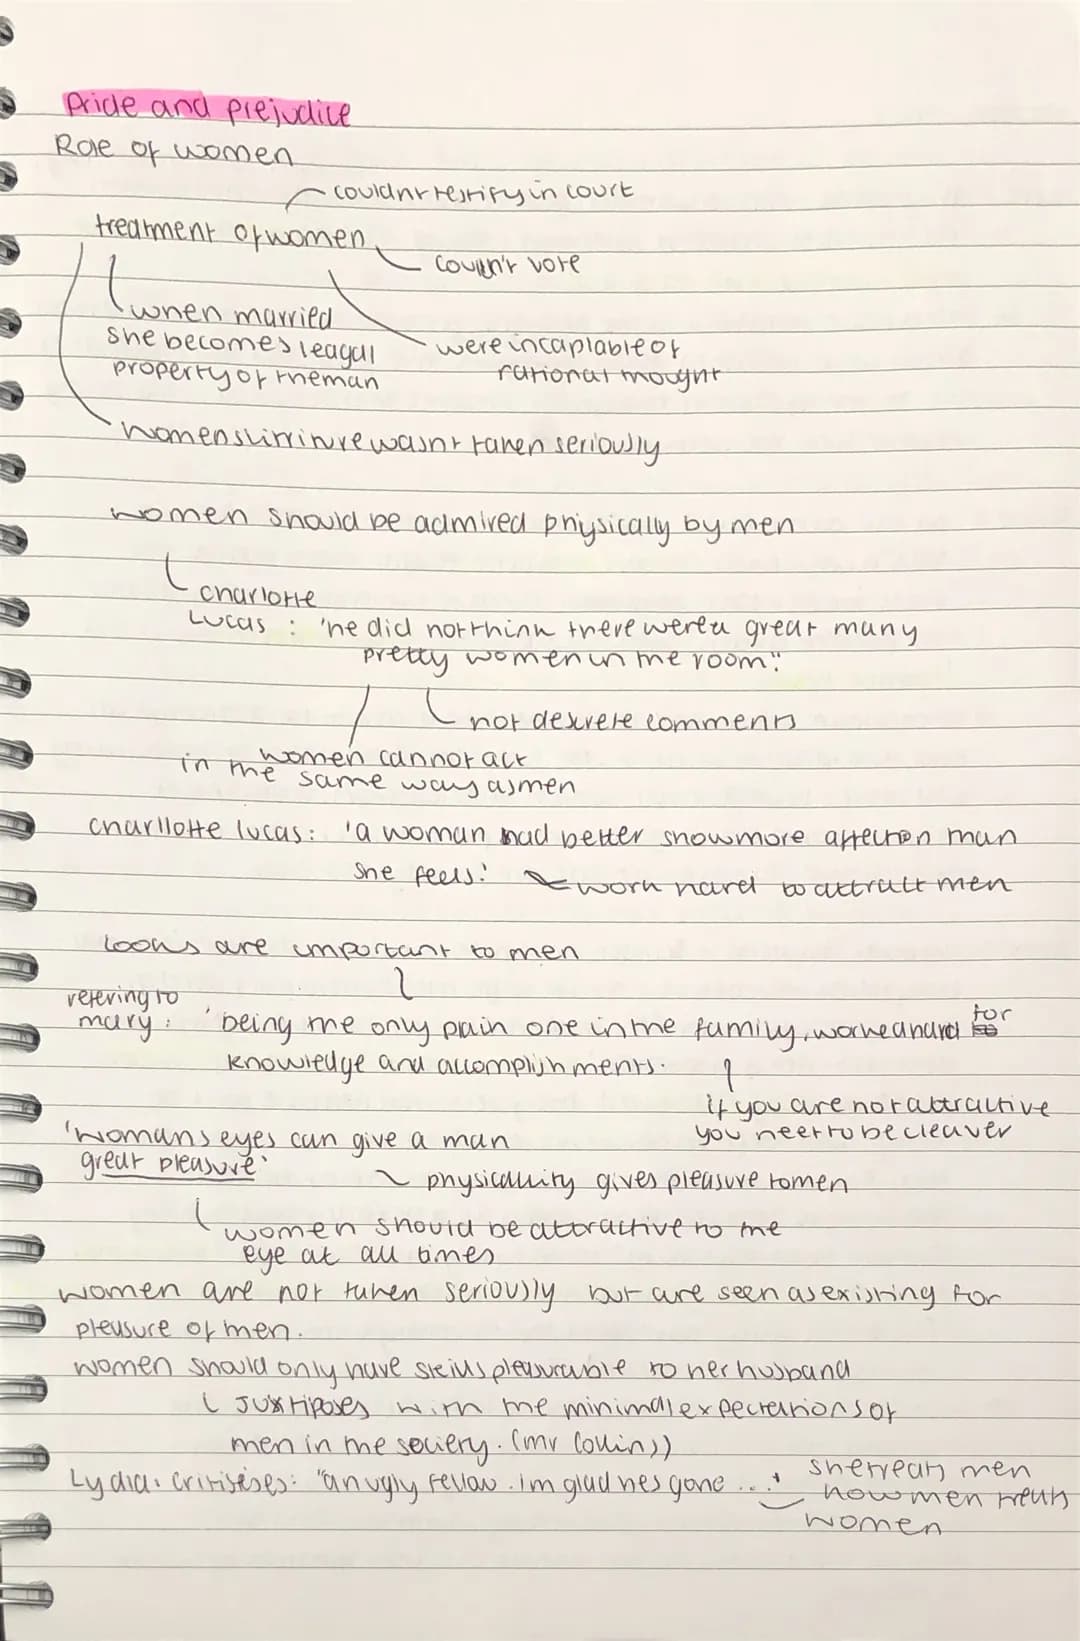 Pride and prejudice
Role of women
couldnt testify in court
treatment of women
couldn't vote
when married
she becomes leagal
property of the man
were incaplable of
rational thought
womens litrinture wasnt taken seriously
women should be admired physically by men
charlotte
Lucas : 'he did not think there were a great many
pretty women in the room."
not descrete comments
women cannot act
in the same way as men
charllotte lucas: 'a woman had better show more affection than
she feels.' work hard to attract men
looks are important to men
refering to
mary : 'being the only plain one in the family, worked hard for
knowledge and accomplishments.
if you are not attractive
you neet to be cleaver
'womans eyes can give a man
great pleasure'
physicallity gives pleasure to men
women should be attractive to the
eye at all times
women are not taken seriously but are seen as existing for
pleasure of men.
women should only have skills pleasurable to her husband
Juxtiposes with the minimal expectations of
men in the society. (mr Collins)
Lydia. critiseses: "an ugly fellow. im glad hes gone ..."
she treats men
how men treats
women